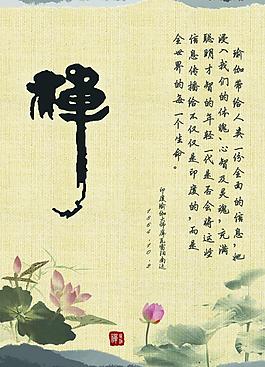 瑜伽带给人类一份全面的信息,把
浸入我们的体魄、心智及灵魂,充满
聪明才智的年轻一代是否会将这些
信息传播给不仅仅是印度的,而是
全世界的每一个生命。
印度瑜伽大师库瓦雷阳南达
禅
禅